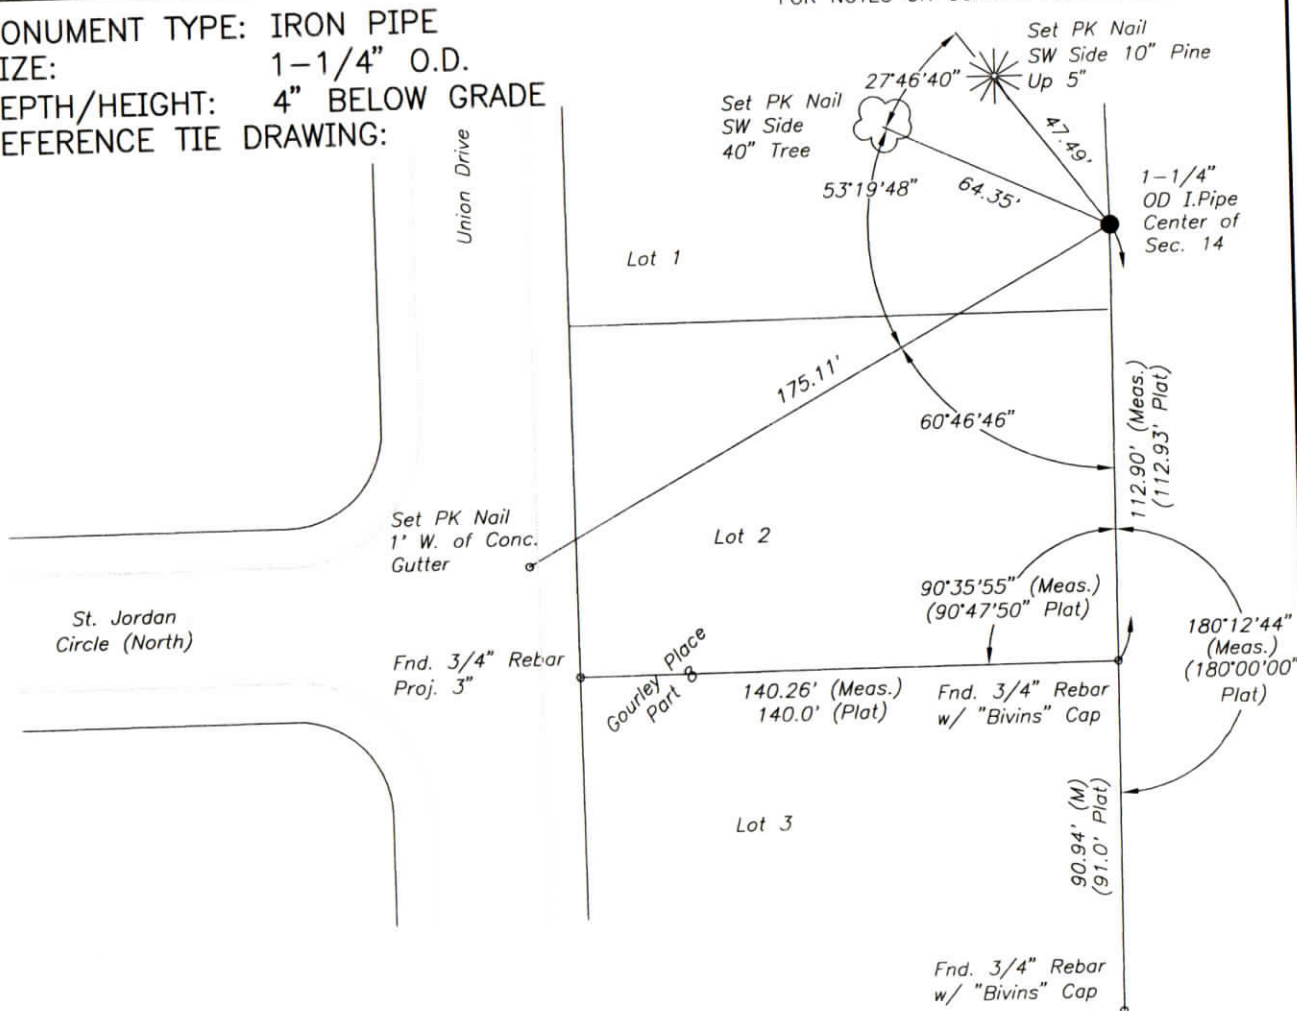 ONUMENT TYPE: IRON PIPE
IZE: 1-1/4" O.D.
EPTH/HEIGHT: 4" BELOW GRADE
EFERENCE TIE DRAWING:
Union Drive
Set PK Nail
SW Side 10" Pine
Up 5"
27°46'40"
Set PK Nail
SW Side
40" Tree
47.49'
53°19'48"
64.35'
1-1/4"
OD I.Pipe
Center of
Sec. 14
Lot 1
175.11'
60°46'46"
112.90' (Meas.)
(112.93' Plat)
Set PK Nail
1' W. of Conc.
Gutter
Lot 2
90°35'55" (Meas.)
(90°47'50" Plat)
180°12'44"
(Meas.)
(180°00'00"
Plat)
St. Jordan
Circle (North)
Fnd. 3/4" Rebar
Proj. 3"
Gourley Place
Part 8
140.26' (Meas.)
140.0' (Plat)
Fnd. 3/4" Rebar
w/ "Bivins" Cap
Lot 3
90.94' (M)
(91.0' Plat)
Fnd. 3/4" Rebar
w/ "Bivins" Cap